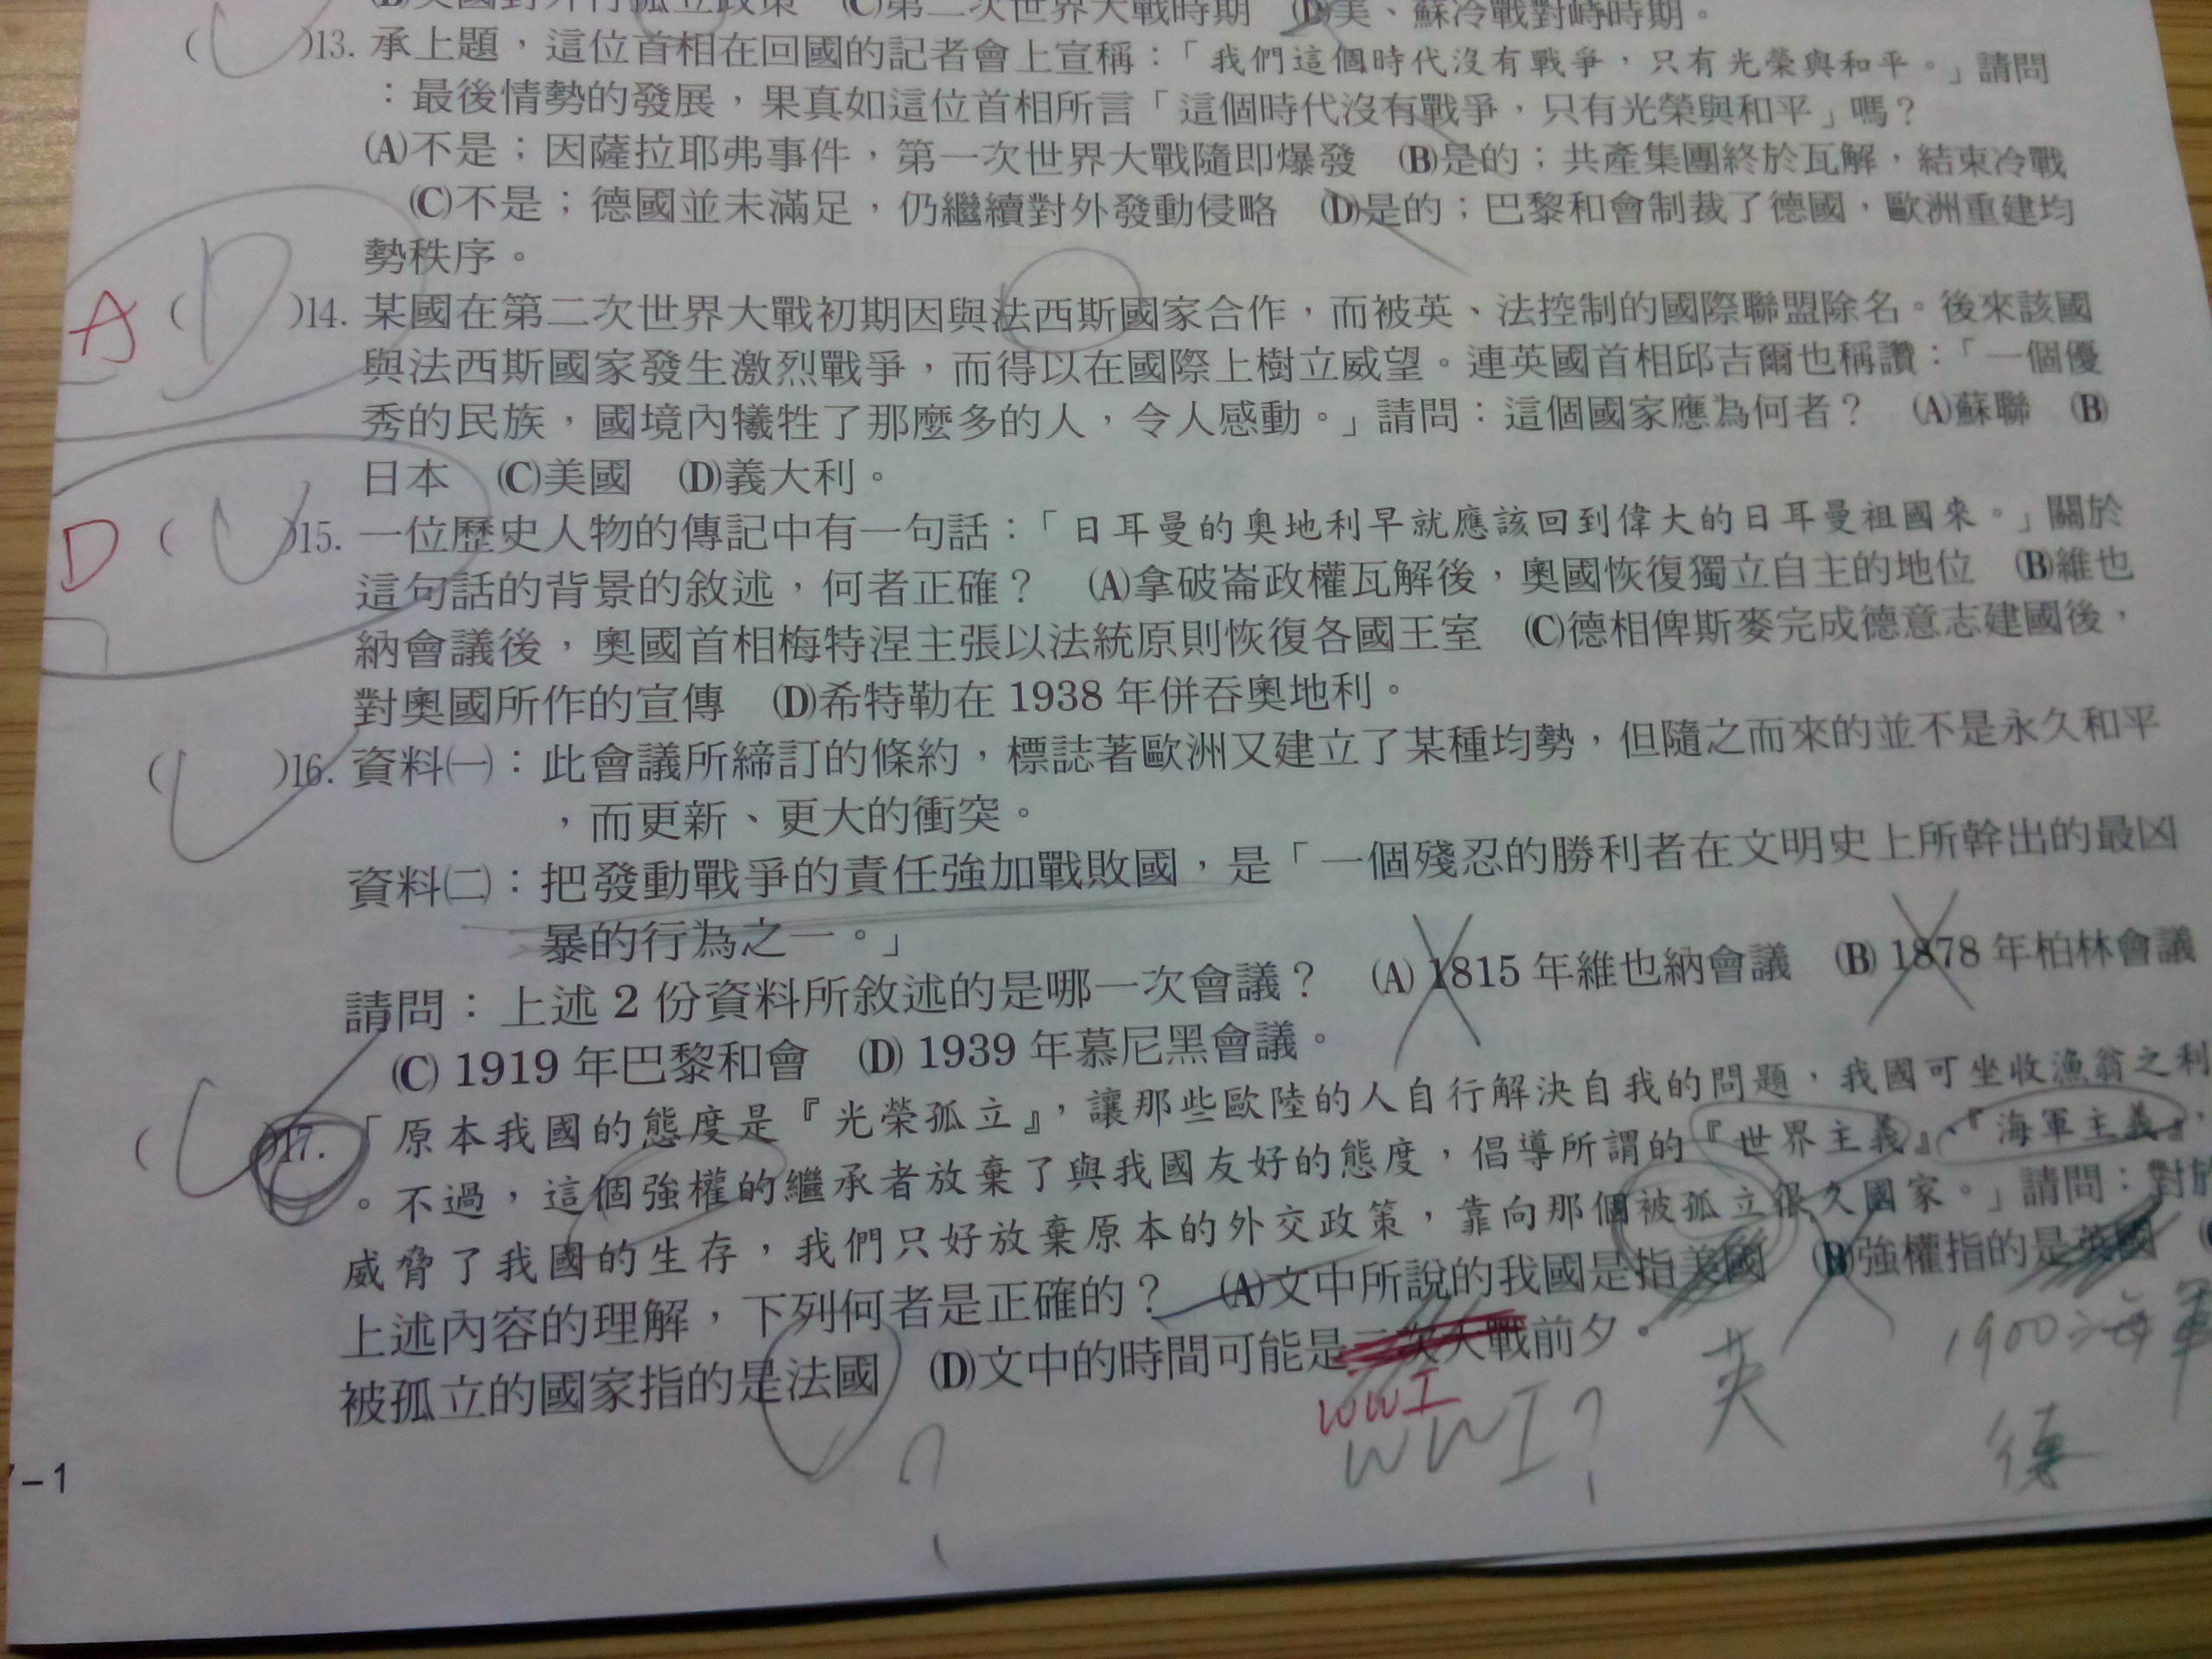 (B)美國對外行孤立政策　(C)第二次世界大戰時期　(D)美、蘇冷戰對峙時期。
( C )13. 承上題，這位首相在回國的記者會上宣稱：「我們這個時代沒有戰爭，只有光榮與和平。」請問
：最後情勢的發展，果真如這位首相所言「這個時代沒有戰爭，只有光榮與和平」嗎？
(A)不是；因薩拉耶弗事件，第一次世界大戰隨即爆發　(B)是的；共產集團終於瓦解，結束冷戰
(C)不是；德國並未滿足，仍繼續對外發動侵略　(D)是的；巴黎和會制裁了德國，歐洲重建均
勢秩序。
A ( D )14. 某國在第二次世界大戰初期因與法西斯國家合作，而被英、法控制的國際聯盟除名。後來該國
與法西斯國家發生激烈戰爭，而得以在國際上樹立威望。連英國首相邱吉爾也稱讚：「一個優
秀的民族，國境內犧牲了那麼多的人，令人感動。」請問：這個國家應為何者？　(A)蘇聯　(B)
日本　(C)美國　(D)義大利。
D ( C )15. 一位歷史人物的傳記中有一句話：「日耳曼的奧地利早就應該回到偉大的日耳曼祖國來。」關於
這句話的背景的敘述，何者正確？　(A)拿破崙政權瓦解後，奧國恢復獨立自主的地位　(B)維也
納會議後，奧國首相梅特涅主張以法統原則恢復各國王室　(C)德相俾斯麥完成德意志建國後，
對奧國所作的宣傳　(D)希特勒在 1938 年併吞奧地利。
( C )16. 資料㈠：此會議所締訂的條約，標誌著歐洲又建立了某種均勢，但隨之而來的並不是永久和平
，而更新、更大的衝突。
資料㈡：把發動戰爭的責任強加戰敗國，是「一個殘忍的勝利者在文明史上所幹出的最凶
暴的行為之一。」
請問：上述 2 份資料所敘述的是哪一次會議？　(A) 1815 年維也納會議　(B) 1878 年柏林會議
(C) 1919 年巴黎和會　(D) 1939 年慕尼黑會議。
( C )17.「原本我國的態度是『光榮孤立』，讓那些歐陸的人自行解決自我的問題，我國可坐收漁翁之利
。不過，這個強權的繼承者放棄了與我國友好的態度，倡導所謂的『世界主義』、『海軍主義』，
威脅了我國的生存，我們只好放棄原本的外交政策，靠向那個被孤立很久國家。」請問：對於
上述內容的理解，下列何者是正確的？　(A)文中所說的我國是指美國　(B)強權指的是英國　(
被孤立的國家指的是法國　(D)文中的時間可能是二次大戰前夕。
英
1900海軍
WWI
WWI?
德
?
-1